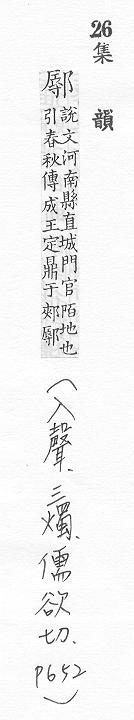 26
集韻
鄏 說文河南縣直城門官陌地也
引春秋傳成王定鼎于郟鄏
(入聲、三燭、儒欲切、P652)